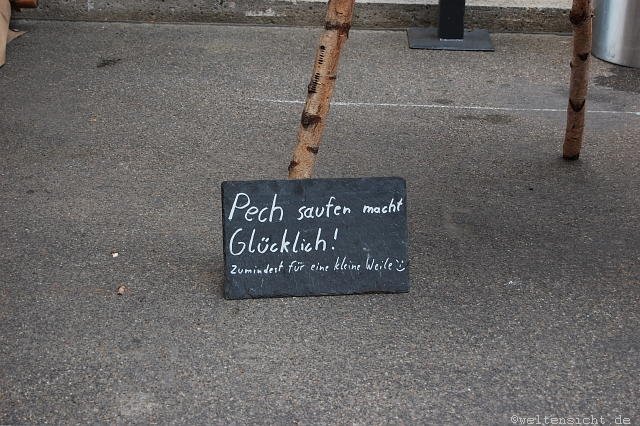 Pech saufen macht
Glücklich!
Zumindest für eine kleine Weile :)
©weltensicht.de